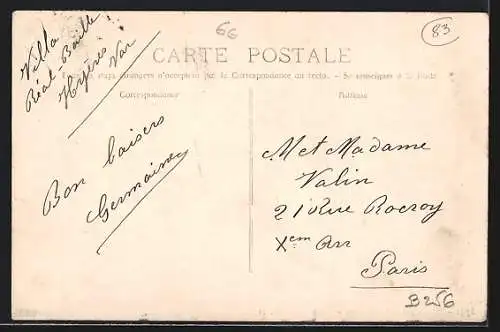 Villa
Réal-Baille
Hyères
Var
66
83
CARTE POSTALE
Tous les pays étrangers n'acceptent pas la Correspondance au recto. - Se renseigner à la Poste
Correspondance
Adresse
Bon baisers
Germaine
M et Madame
Valin
21 Rue Rocroy
Xem Arr
Paris
B256